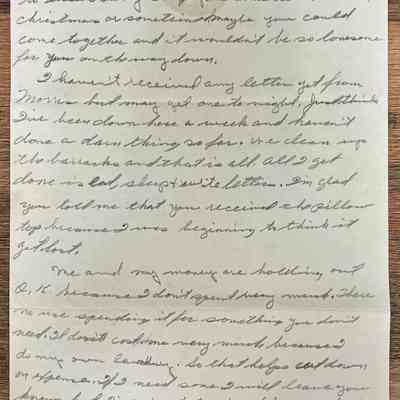 christmas or something maybe you could
come together and it wouldn't be so lonesome
for you on the way down.
I haven't received any letter yet from
Morris but may get one to night. Just think
I've been down here a week and haven't
done a darn thing so far. We clean up
the barracks and that is all. All I get
done is eat, sleep & write letters. I'm glad
you told me that you received the pillow
top because I was beginning to think it
got lost.
Me and my money are holding out
O.K. because I don't spend very much. There
no use spending it for something you don't
need. It doesn't cost me very much because I
do my own laundry. So that helps cut down
on expense. If I need some I will leave you